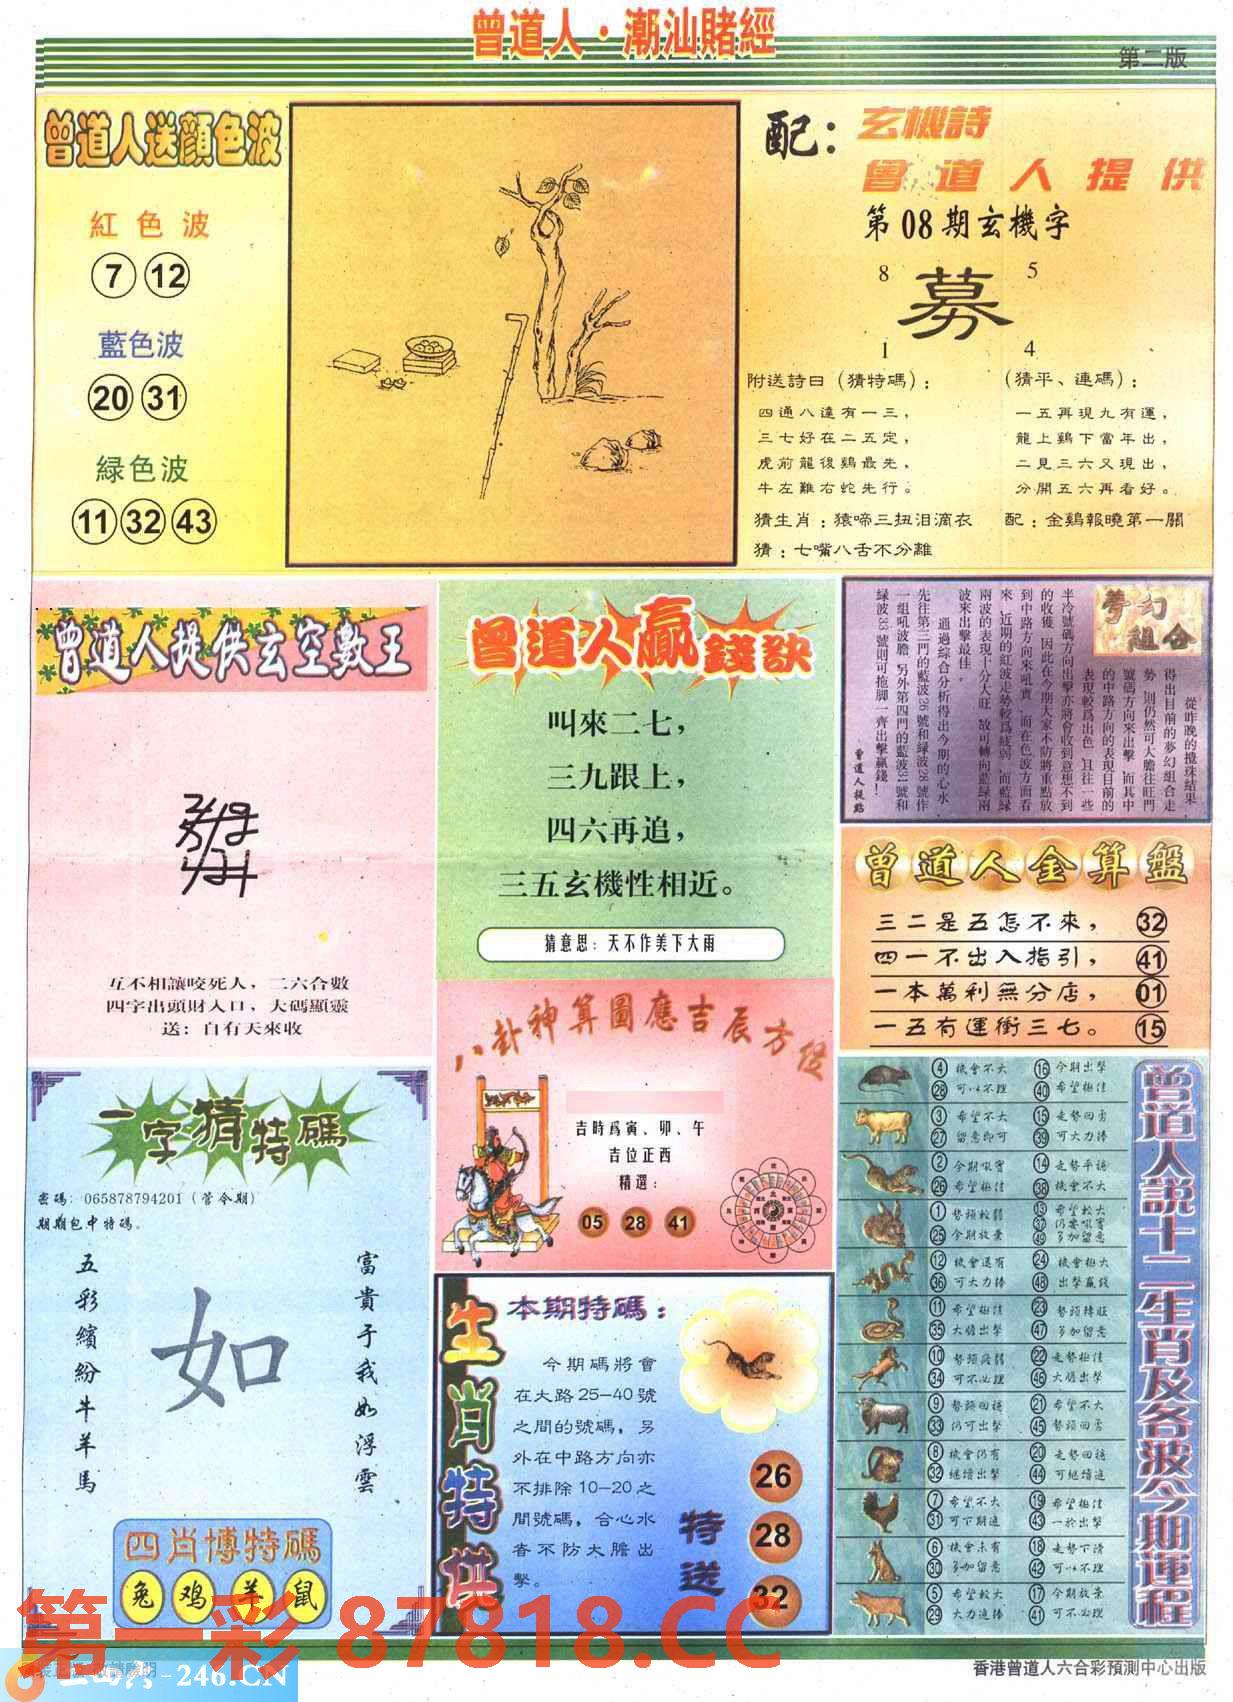 曾道人·潮汕賭經
第二版
曾道人送顏色波
紅色波
7 12
藍色波
20 31
緑色波
11 32 43
配：
玄機詩
曾道人提供
第08期玄機字
8 5
募
1 4
附送詩曰（猜特碼）：
四通八達有一三，
三七好在二五定，
虎前龍後鷄最先，
牛左難右蛇先行。
（猜平、連碼）：
一五再現九有運，
龍上鷄下當年出，
二見三六又現出，
分開五六再看好。
猜生肖：猿啼三扭泪滴衣
配：金鷄報曉第一關
猜：七嘴八舌不分離
曾道人提供玄空數王
互不相讓咬死人，二六合數
四字出頭財入口，大碼顯靈
送：自有天來收
曾道人贏錢訣
叫來二七，
三九跟上，
四六再追，
三五玄機性相近。
猜意思：天不作美下大雨
夢幻組合
從昨晚的攪珠結果
得出目前的夢幻組合走
勢 則仍然可大膽往旺門
號碼方向來出擊 而其中
的中路方向的表現目前的
表現較爲出色 且往一些
半冷號碼方向出擊亦將會收到意想不到
的收獲 因此在今期大家不防將重點放
到中路方向來吼實 而在色波方面看
來 近期的紅波走勢較爲疲弱 而藍緑
兩波的表現十分大旺 故可轉向藍緑兩
波來出擊最佳。
通過綜合分析得出今期的心水
先往第三門的藍波26號和緑波28號作
一組吼波膽 另外第四門的藍波31號和
緑波33號則可拖脚一齊出擊贏錢！
曾道人提點
曾道人金算盤
三二是五怎不來， 32
四一不出入指引， 41
一本萬利無分店， 01
一五有運衝三七。 15
八卦神算圖應吉辰方位
吉時爲寅、卯、午
吉位正西
精選：
05 28 41
一字猜特碼
密碼：065878794201（菅令期）
期期包中特碼。
五彩繽紛牛羊馬
如
富貴于我如浮雲
四肖博特碼
兔 鸡 羊 鼠
生肖特供
本期特碼：
今期碼將會
在大路25—40號
之間的號碼，另
外在中路方向亦
不排除10—20之
間號碼，合心水
者不防大膽出
擊。
特送
26
28
32
曾道人説十二生肖及各波今期運程
4 機會不大 16 今期出擊
28 可以不理 40 希望極佳
3 希望不大 15 走勢回勇
27 留意即可 39 可大力捧
2 今期吼實 14 走勢平穩
26 希望極佳 38 機會不大
1 勢頭較弱 13 希望較大
37 仍要吼實
25 今期放棄 49 多加留意
12 機會還有 24 機會極大
36 可大力捧 48 出擊贏錢
11 希望極佳 23 勢頭轉旺
35 大膽出擊 47 多加留意
10 勢頭疲弱 22 走勢極佳
34 可不必理 46 大膽出擊
9 勢頭回穩 21 希望不大
33 仍可出擊 45 勢頭回勇
8 機會仍有 20 走勢回穩
32 繼續出擊 44 可繼續追
7 希望不大 19 希望極佳
31 可下期追 43 一於出擊
6 機會未有 18 走勢下滑
30 多加留意 42 可以不理
5 希望較大 17 今期放棄
29 大力追捧 41 可不必理
第一彩 87818.CC
-246.CN
香港曾道人六合彩預測中心出版